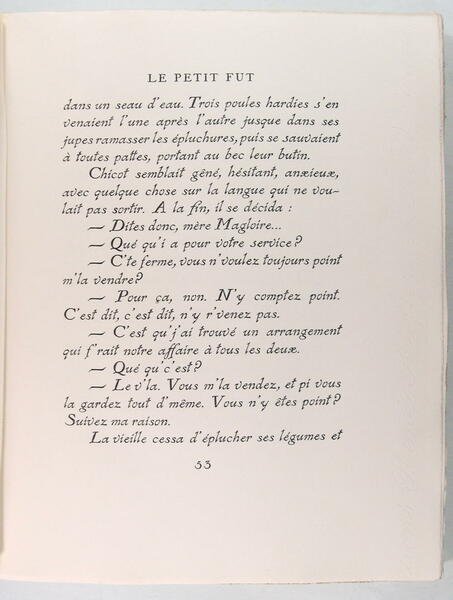 LE PETIT FUT
dans un seau d'eau. Trois poules hardies s'en
venaient l'une après l'autre jusque dans ses
jupes ramasser les épluchures, puis se sauvaient
à toutes pattes, portant au bec leur butin.
Chicot semblait gêné, hésitant, anxieux,
avec quelque chose sur la langue qui ne vou-
lait pas sortir. A la fin, il se décida :
— Dites donc, mère Magloire...
— Qué qu'i a pour votre service ?
— C'te ferme, vous n'voulez toujours point
m'la vendre ?
— Pour ça, non. N'y comptez point.
C'est dit, c'est dit, n'y r'venez pas.
— C'est qu'j'ai trouvé un arrangement
qui f'rait notre affaire à tous les deux.
— Qué qu'c'est ?
— Le v'la. Vous m'la vendez, et pi vous
la gardez tout d'même. Vous n'y êtes point ?
Suivez ma raison.
La vieille cessa d'éplucher ses légumes et
53